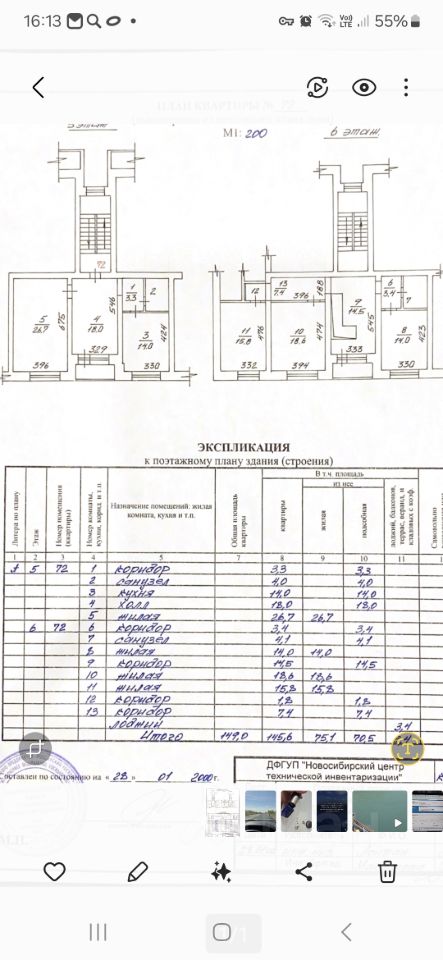 16:13
Vo) LTE
55%
ПЛАН КВАРТИРЫ №
5 этаж
М1: 200
6 этаж
72
1
3.3
2
5
26,7
675
4
18.0
546
3
14.0
424
396
329
330
13
7.4
396
188
12
9
14.5
545
6
3.4
7
11
15,8
476
10
18,6
474
8
14.0
423
332
394
333
330
ЭКСПЛИКАЦИЯ
к поэтажному плану здания (строения)
Литера по плану
Этаж
Номер помещения (квартиры)
Номер комнаты, кухни, корид. и т.п.
Назначение помещений: жилая комната, кухня и т.п.
Общая площадь квартиры
В т.ч. площадь
квартиры
из нее
жилая
подсобная
лоджий, балконов, террас, веранд, и кладовых с коэф.
Самовольно
1 2 3 4 5 7 8 9 10 11
А 5 72 1 коридор 3,3 3,3
2 санузел 4,0 4,0
3 кухня 14,0 14,0
4 холл 18,0 18,0
5 жилая 26,7 26,7
6 72 6 коридор 3,4 3,4
7 санузел 4,1 4,1
8 жилая 14,0 14,0
9 коридор 14,5 14,5
10 жилая 18,6 18,6
11 жилая 15,8 15,8
12 коридор 1,8 1,8
13 коридор 7,4 7,4
лоджии 3,4
Итого 149,0 145,6 75,1 70,5
Составлен по состоянию на « 28 » 01 2000г.
ДФГУП "Новосибирский центр
технической инвентаризации"
М.П.